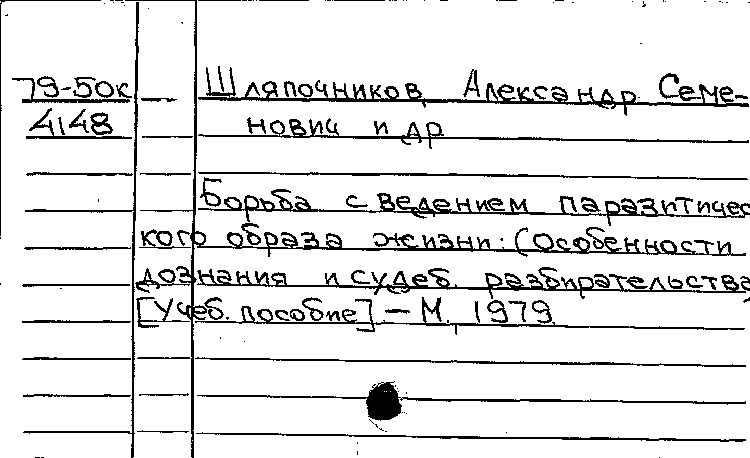 79-50к Шляпочников, Александр Семе-
4148 нович и др
Борьба с ведением паразитичес
кого образа жизни: (Особенности
дознания и судеб. разбирательства
[Учеб. пособие] – М., 1979